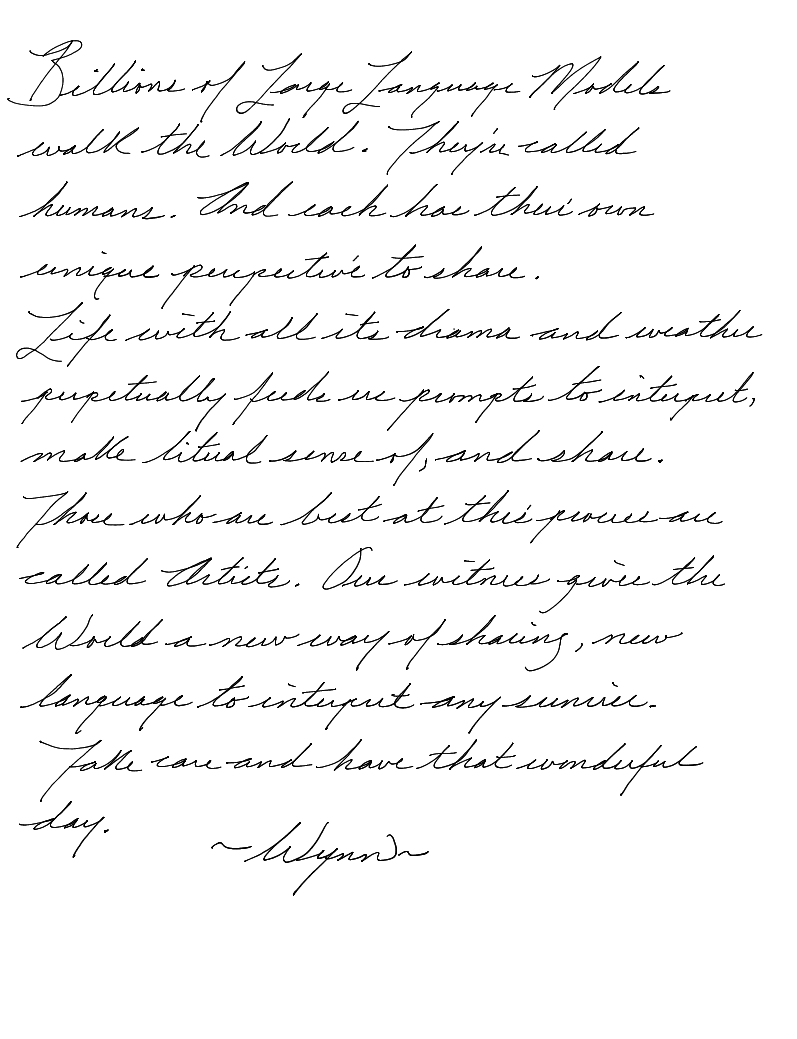 Billions of Large Language Models
walk the World. They're called
humans. And each has their own
unique perspective to share.
Life with all its drama and weather
perpetually feeds us prompts to interpret,
make litual sense of, and share.
Those who are best at this process are
called Artists. Our witness gives the
World a new way of sharing, new
language to interpret any sunrise.
Take care and have that wonderful
day.
~Wynn~